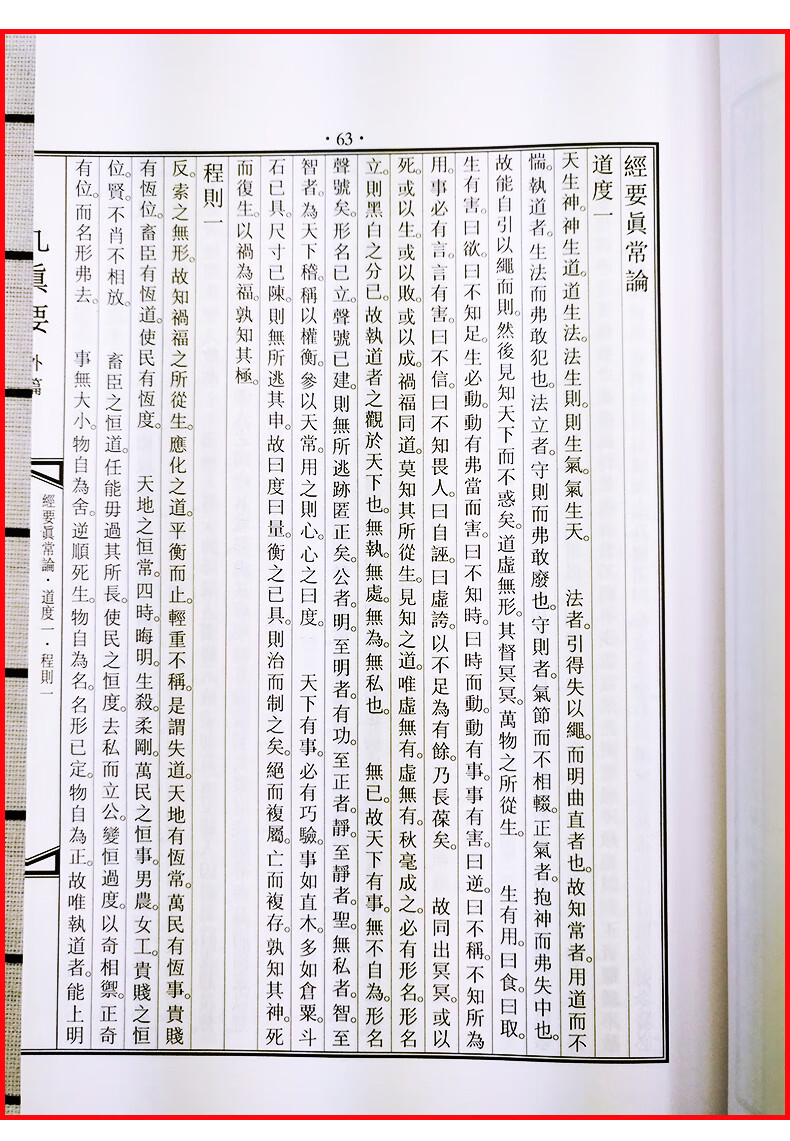 ·63·
經要眞常論
道度一
天生神。神生道。道生法。法生則。則生氣。氣生天。　法者。引得失以繩。而明曲直者也。故知常者。用道而不
惴。執道者。生法而弗敢犯也。法立者。守則而弗敢廢也。守則者。氣節而不相輟。正氣者。抱神而弗失中也。
故能自引以繩而則。然後見知天下而不惑矣。道虛無形。其督冥冥。萬物之所從生。　生有用。曰食。曰取。
生有害。曰欲。曰不知足。生必動。動有弗當而害。曰不知時。曰時而動。動有事。事有害。曰逆。曰不稱。不知所為
用。事必有言。言有害。曰不信。曰不知畏人。曰自誣。曰虛誇。以不足為有餘。乃長葆矣。　故同出冥冥。或以
死。或以生。或以敗。或以成。禍福同道。莫知其所從生。見知之道。唯虛無有。虛無有。秋毫成之。必有形名。形名
立。則黑白之分己。故執道者之觀於天下也。無執。無處。無為。無私也。　無已。故天下有事。無不自為。形名
聲號矣。形名已立。聲號已建。則無所逃跡匿正矣。公者。明。至明者。有功。至正者。靜。至靜者。聖。無私者。智。至
智者。為天下稽。稱以權衡。參以天常。用之則心。心之曰度。　天下有事。必有巧驗。事如直木。多如倉粟。斗
石已具。尺寸已陳。則無所逃其申。故曰度曰量。衡之已具。則治而制之矣。絕而複屬。亡而複存。孰知其神。死
而復生。以禍為福。孰知其極。
程則一
反。索之無形。故知禍福之所從生。應化之道。平衡而止。輕重不稱。是謂失道。天地有恆常。萬民有恆事。貴賤
有恆位。畜臣有恆道。使民有恆度。　天地之恒常。四時。晦明。生殺。柔剛。萬民之恒事。男農。女工。貴賤之恒
位。賢。不肖不相放。　畜臣之恒道。任能毋過其所長。使民之恒度。去私而立公。變恒過度。以奇相禦。正奇
有位。而名形弗去。　事無大小。物自為舍。逆順死生。物自為名。名形已定。物自為正。故唯執道者。能上明
眞要
外篇
經要眞常論·道度一·程則一